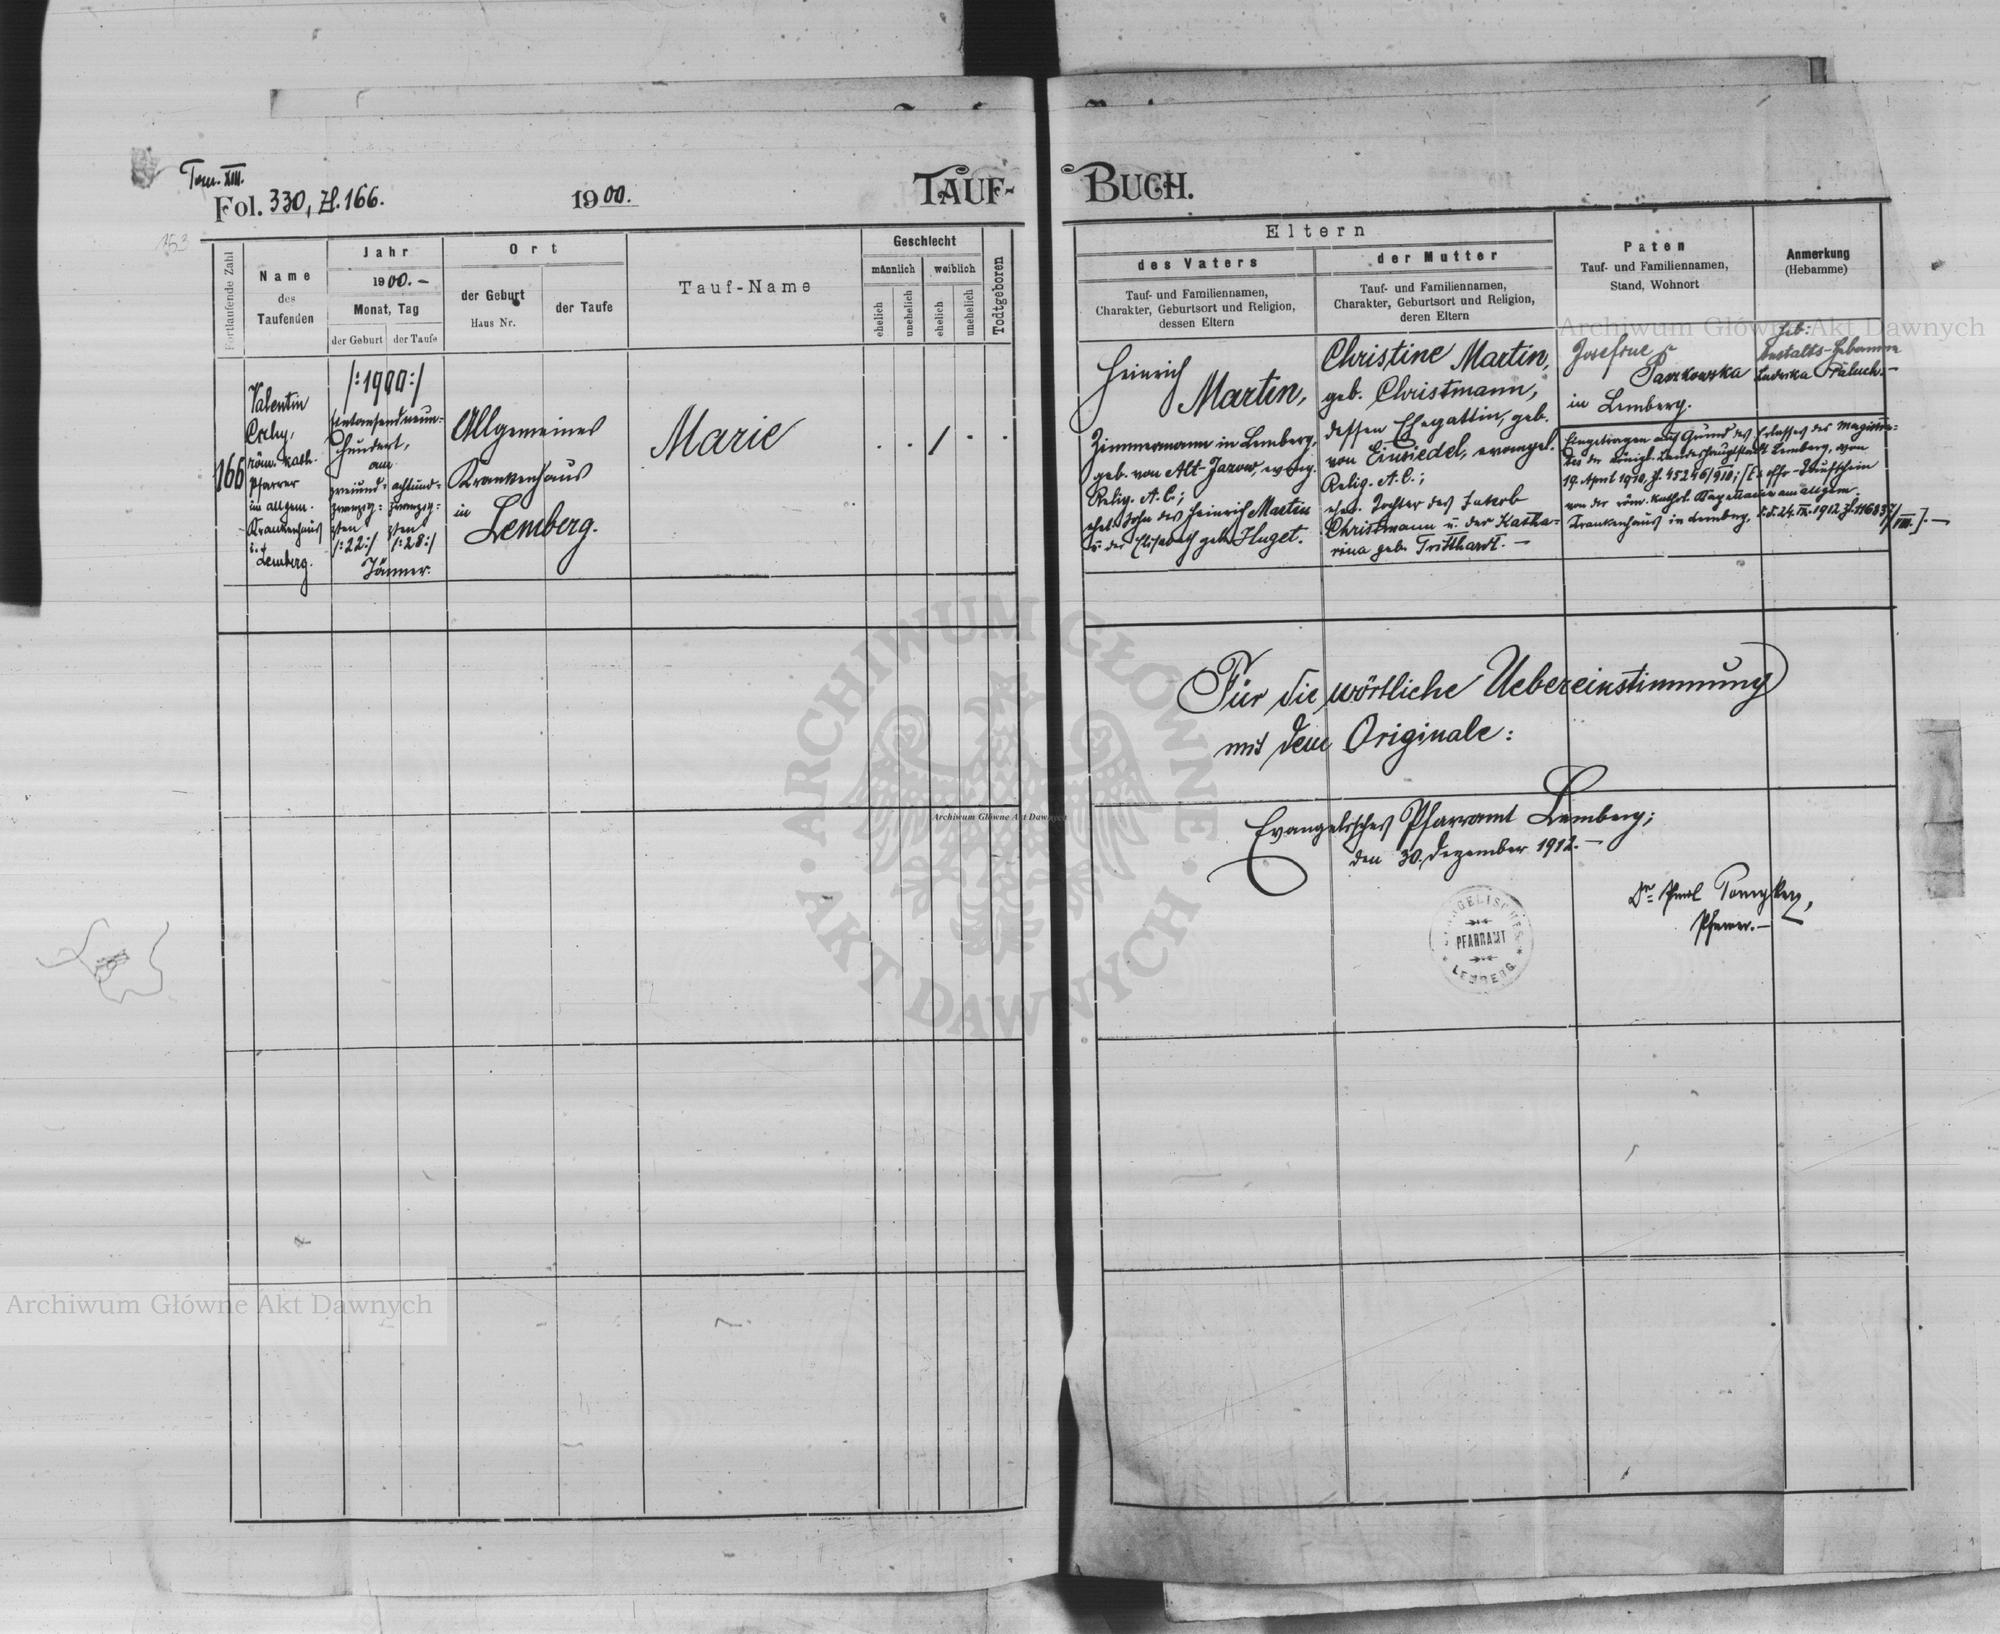 Tom. XIII.
Fol. 330, Zl. 166.
1900.
TAUF-
BUCH.
153
Fortlaufende Zahl
Name
des
Taufenden
Jahr
1900.-
Monat, Tag
der Geburt
der Taufe
Ort
der Geburt
Haus Nr.
der Taufe
Tauf-Name
Geschlecht
männlich
weiblich
ehelich
unehelich
ehelich
unehelich
Todtgeboren
Eltern
des Vaters
Tauf- und Familiennamen,
Charakter, Geburtsort und Religion,
dessen Eltern
der Mutter
Tauf- und Familiennamen,
Charakter, Geburtsort und Religion,
deren Eltern
Paten
Tauf- und Familiennamen,
Stand, Wohnort
Anmerkung
(Hebamme)
166
Valentin
röm. kath.
Pfarrer
im allgem.
Krankenhaus
Lemberg.
/:1900:/
Eintausendneun-
hundert,
am
zweiund-
zwanzig-
sten
/:22:/
achtund-
zwanzig-
sten
/:28:/
Jänner.
Allgemeines
Krankenhaus
in
Lemberg.
Marie
. . / . .
Heinrich
Martin,
Zimmermann in Lemberg,
geb. von Alt-Jazow, evang.
Relig. A.C.;
ehel. Sohn des Heinrich Martin
u. der Elisabeth geb. Huget.
Christine Martin,
geb. Christmann,
dessen Ehegattin, geb.
von Einsiedel, evangel.
Relig. A.C.;
ehel. Tochter des Jakob
Christmann u. der Katha-
rina geb. Tritthardt. -
Josefine
Paszkowska
in Lemberg.
Heb:
Anstalts-Hebamme
Ludwika Paluch.-
Eingetragen auf Grund des Erlasses des Magistra-
tes der königl. Landeshauptstadt Lemberg, vom
19. April 1910, Zl. 45246/910; [Ex offo-Taufschein
von der röm. kathol. Kapellanei am allgem.
Krankenhaus in Lemberg, d.d. 24. IX. 1912 Zl. 116837/VIII.]. -
Für die wörtliche Uebereinstimmung
mit dem Originale:
Evangelisches Pfarramt Lemberg;
den 30. Dezember 1912. -
Dr.
Pfarrer.-
EVANGELISCHES
PFARRAMT
LEMBERG
Archiwum Główne Akt Dawnych
Archiwum Główne Akt Dawnych
Archiwum Główne Akt Dawnych
ARCHIWUM GŁÓWNE
AKT DAWNYCH